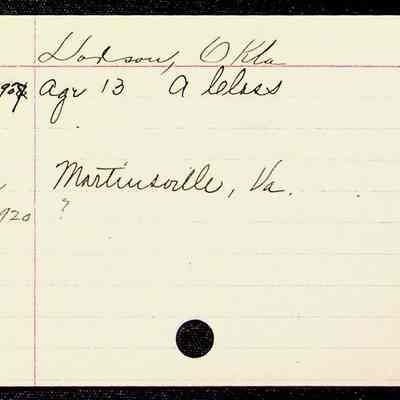 Dodson, Okla
Age 13 A Class
Martinsville, Va.
?
920